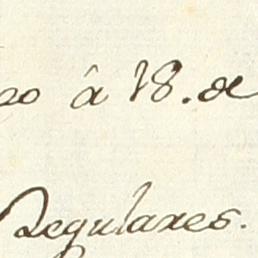 â 18. de
Regulares.